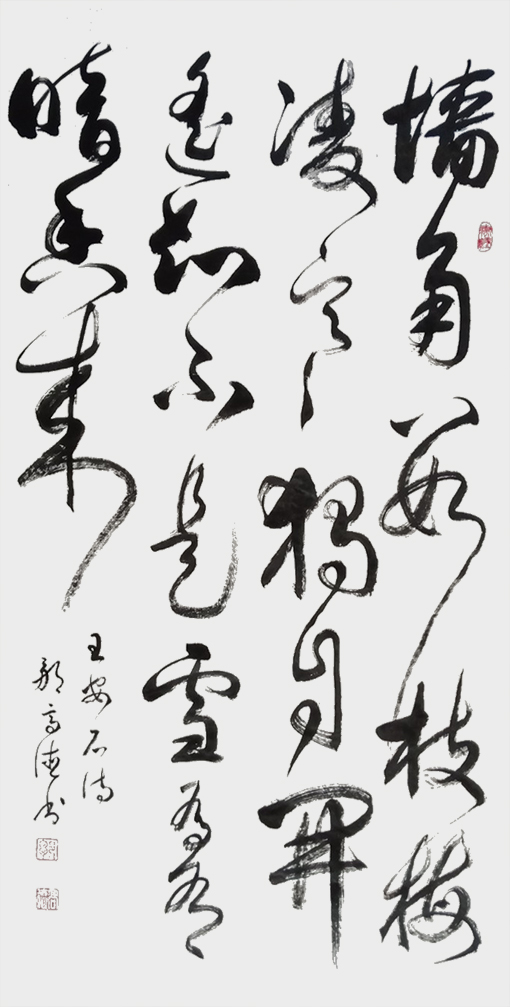 墙角数枝梅
凌寒獨自開
遥知不是雪为有
暗香来
王安石诗
高德书